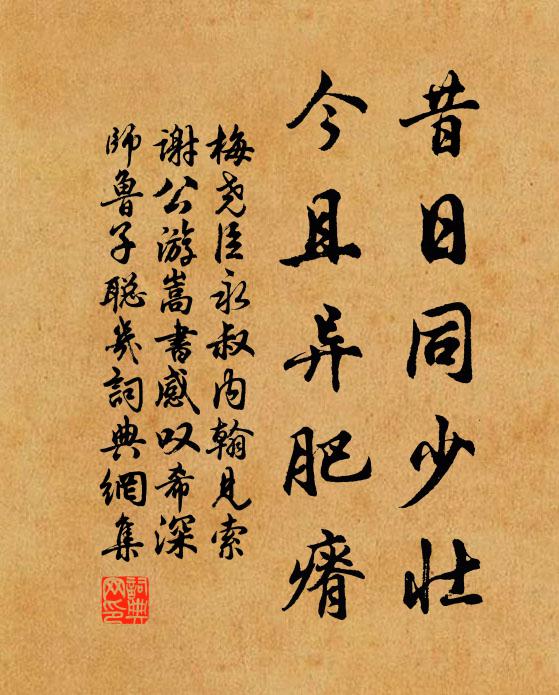 昔日同少壮
今且异肥瘠
梅尧臣永叔内翰见索
谢公游嵩書感叹希深
師魯子聪幾詞典網集
詞典网印